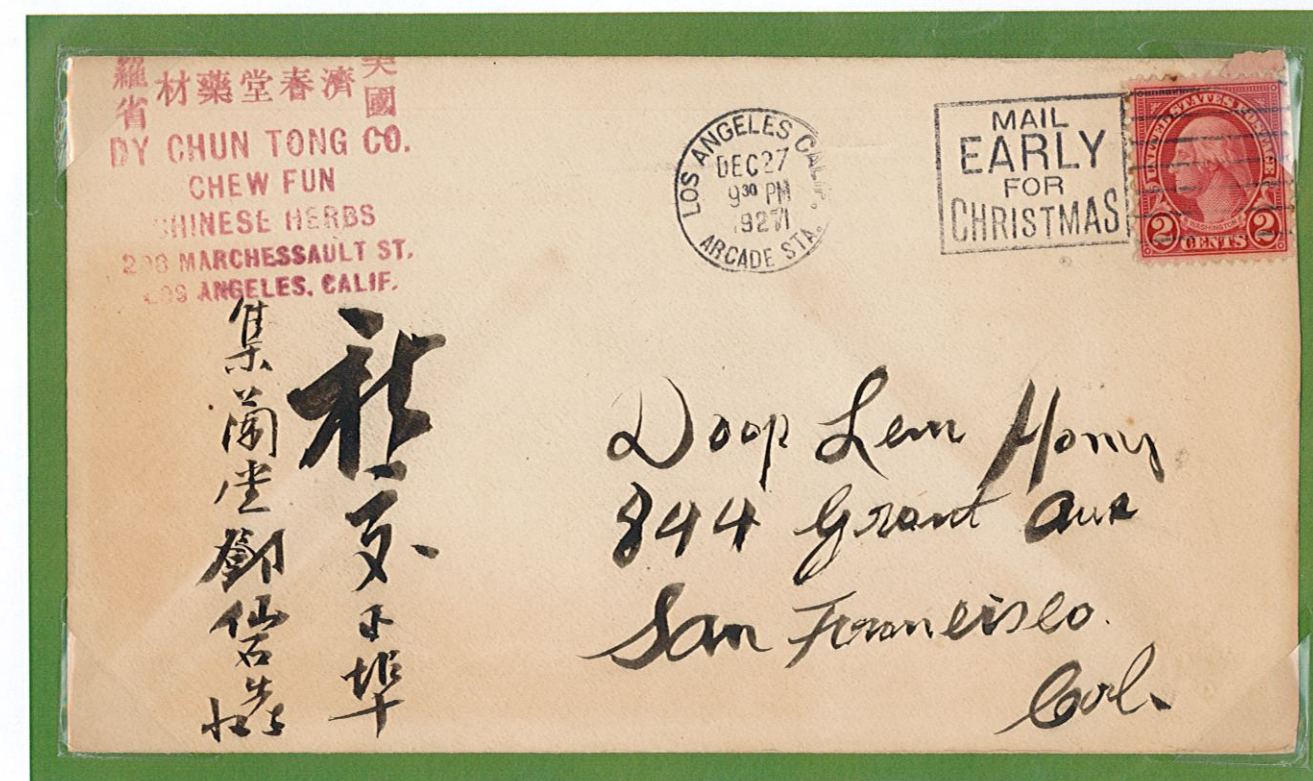 羅省
材藥堂春濟
美國
DY CHUN TONG CO.
CHEW FUN
CHINESE HERBS
MARCHESSAULT ST.
LOS ANGELES, CALIF.
LOS ANGELES CALIF.
DEC 27
9 30 PM
1927
ARCADE STA.
MAIL
EARLY
FOR
CHRISTMAS
UNITED STATES POSTAGE
WASHINGTON
2 CENTS 2
Doop Lem Hong
844 Grant Ave
San Francisco.
Cal.
交正埠
集蘭堂鄧仙